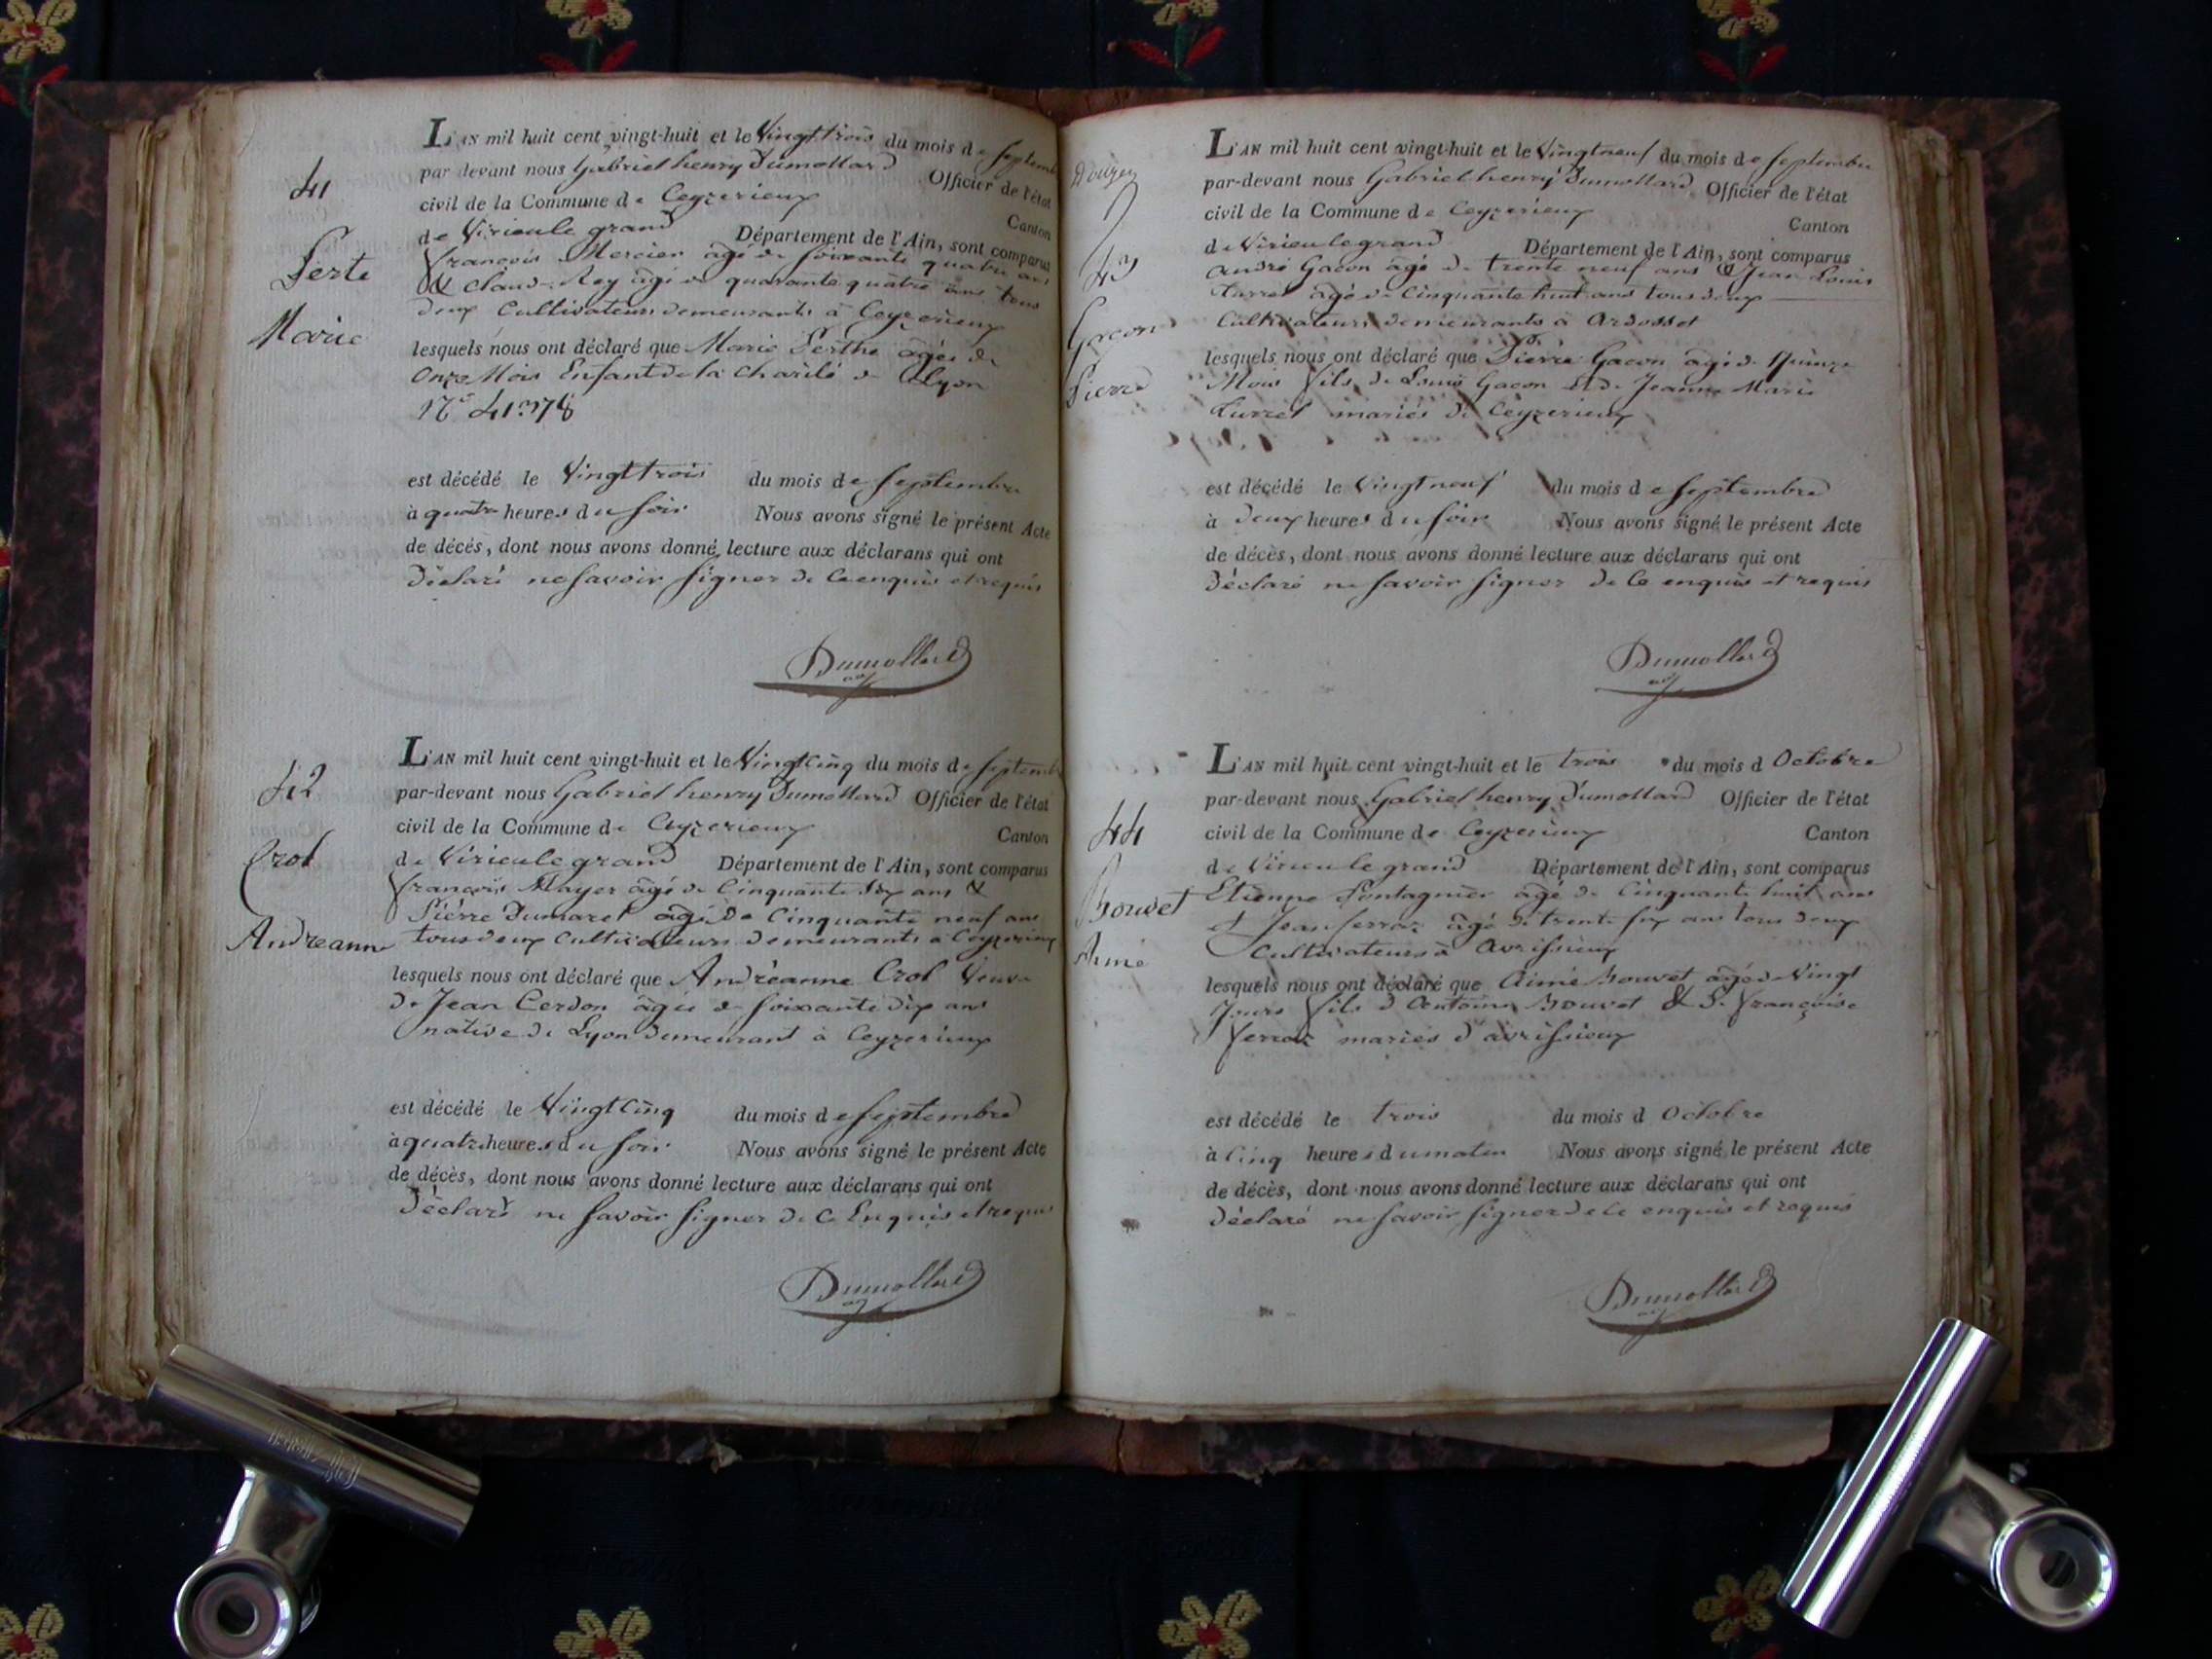 41
Perte
Marie
L'AN mil huit cent vingt-huit et le Vingt trois du mois de septemb
par devant nous Gabriel henry Dumollard Officier de l'état
civil de la Commune de Ceyzerieux Canton
de Virieu le grand Département de l'Ain, sont comparus
françois Mercier âgé de soixante quatre ans
& Claude Rey âgé de quarante quatre ans tous
deux Cultivateurs demeurants à Ceyzerieux
lesquels nous ont déclaré que Marie Perthe âgée de
Onze Mois Enfant de la Charité de Lyon
N° 41378
est décédé le Vingt trois du mois de septembre
à quatre heures du soir Nous avons signé le présent Acte
de décès, dont nous avons donné lecture aux déclarans qui ont
Déclaré ne savoir signer de ce enquis et requis
Dumollard
42
Crol
Andréanne
L'AN mil huit cent vingt-huit et le Vingt Cinq du mois de septemb
par-devant nous Gabriel henry Dumollard Officier de l'état
civil de la Commune de Ceyzerieux Canton
de Virieu le grand Département de l'Ain, sont comparus
françois Mayer âgé de Cinquante dix ans &
Piérre Dumaret âgé de Cinquante neuf ans
tous deux Cultivateurs demeurants à Ceyzerieux
lesquels nous ont déclaré que Andréanne Crol Veuve
de Jean Cerdon âgée de soixante dix ans
native de Lyon demeurant à Ceyzerieux
est décédé le Vingt Cinq du mois de septembre
à quatre heures du soir Nous avons signé le présent Acte
de décès, dont nous avons donné lecture aux déclarans qui ont
Déclaré ne savoir signer de Ce Enquis et requis
Dumollard
43
Gacon
Pierre
L'AN mil huit cent vingt-huit et le Vingt neuf du mois de septembre
par-devant nous Gabriel henry Dumollard Officier de l'état
civil de la Commune de Ceyzerieux Canton
de Virieu le grand Département de l'Ain, sont comparus
André Gacon âgé de trente neuf ans & Jean Louis
Turrel âgé de Cinquante huit ans tous deux
Cultivateurs demeurants à Ardosset
lesquels nous ont déclaré que Piérre Gacon âgé de Quinze
Mois fils de Louis Gacon et de Jeanne Marie
Turrel mariés de Ceyzerieux
est décédé le Vingt neuf du mois de septembre
à deux heures du soir Nous avons signé le présent Acte
de décès, dont nous avons donné lecture aux déclarans qui ont
Déclaré ne savoir signer de Ce enquis et requis
Dumollard
44
Bouvet
Aimé
L'AN mil huit cent vingt-huit et le trois du mois d Octobre
par-devant nous Gabriel henry Dumollard Officier de l'état
civil de la Commune de Ceyzerieux Canton
de Virieu le grand Département de l'Ain, sont comparus
Etienne Pontagnier âgé de Cinquante huit ans
et Jean ferroz âgé de trente six ans tous deux
Cultivateurs à Avrissieux
lesquels nous ont déclaré que Aimé Bouvet âgé de Vingt
Jours fils d'Antoine Bouvet & de françoise
ferroz mariés d'avrissieux
est décédé le trois du mois d Octobre
à Cinq heures du matin Nous avons signé le présent Acte
de décès, dont nous avons donné lecture aux déclarans qui ont
Déclaré ne savoir signer de Ce enquis et requis
Dumollard